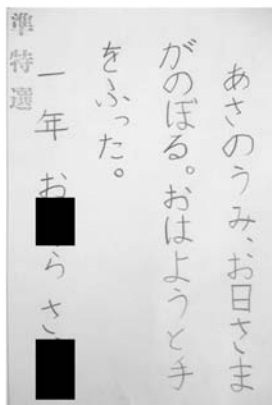 あさのうみ、お日さま
がのぼる。おはようと手
をふった。
一年 お らさ
準特選